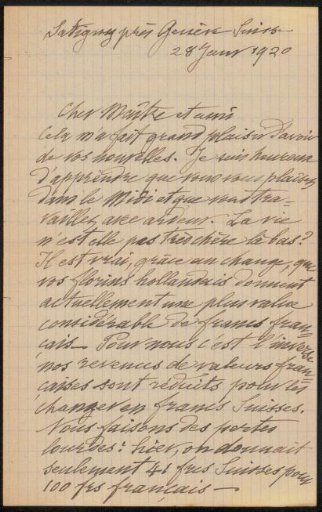 Satigny près Genève Suisse
28 Janv 1920
Cher Maître et ami
Cela m'a fait grand plaisir d'avoir
de vos nouvelles. Je suis heureux
d'apprendre que vous vous plaisez
dans le Midi et que vous tra-
vaillez avec ardeur. La vie
n'est elle pas très chère là bas?
Il est vrai, grâce au change, que
vos florins hollandais donnent
actuellement une plus value
considérable de francs fran-
çais – Pour nous c'est l'inverse
nos revenus de valeurs fran-
çaises sont réduits pour les
changer en francs Suisses.
Nous faisons des pertes
lourdes: hier, on donnait
seulement 41 frcs Suisses pour
100 frs français –